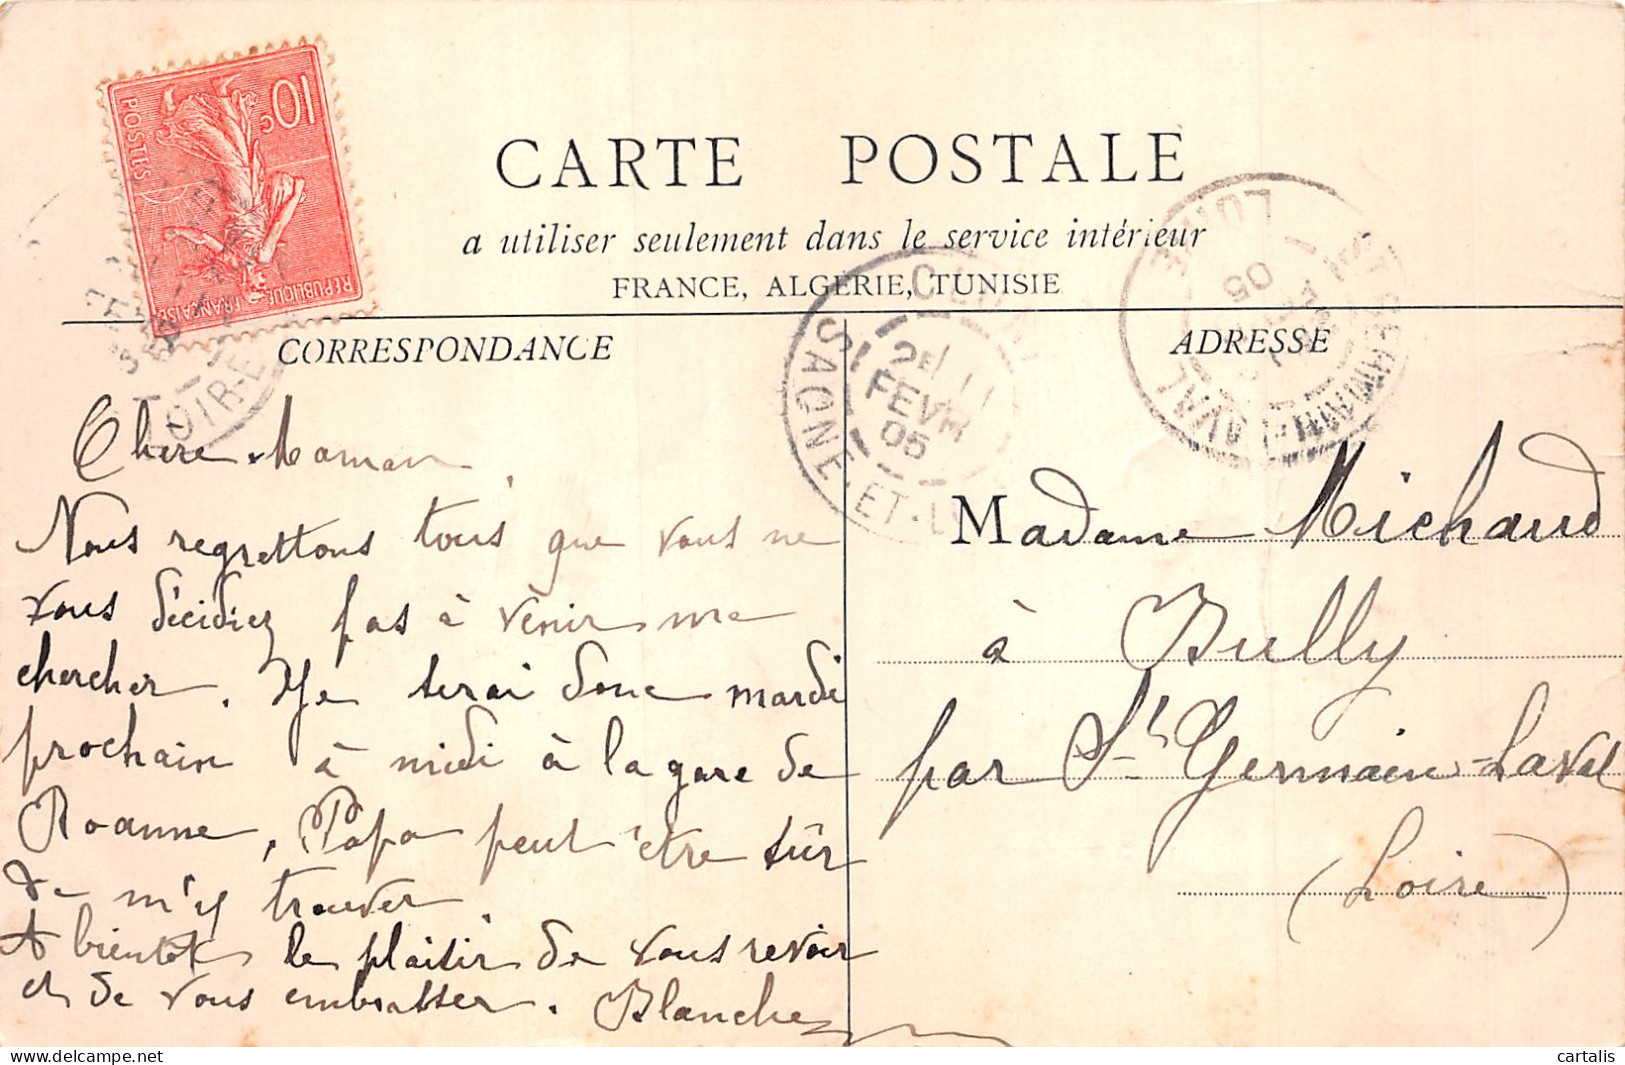 10c
POSTES
REPUBLIQUE FRANÇAISE
CARTE POSTALE
a utiliser seulement dans le service intérieur
FRANCE, ALGERIE, TUNISIE
CORRESPONDANCE
ADRESSE
2E
FEVR
05
SAONE-ET-L
LOIRE
05
ST-GERMAIN-LAVAL
LOIRE
Chère Maman
Nous regrettons tous que vous ne
vous décidiez pas à venir me
chercher. Je serai donc mardi
prochain à midi à la gare de
Roanne, Papa peut être sûr
de m'y trouver
A bientôt le plaisir de vous revoir
et de vous embrasser. Blanche
Madame Michaud
à Bully
par St Germain-Laval
(Loire)
cartalis